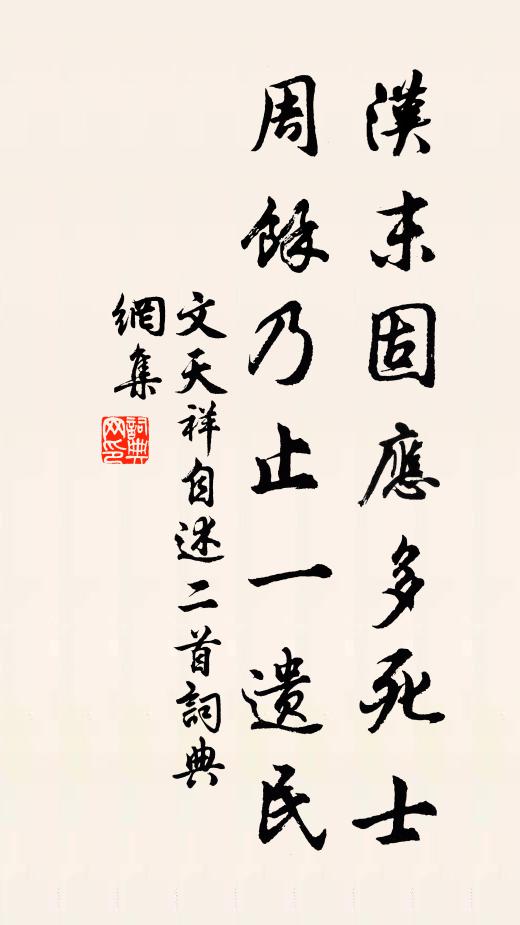 漢末固應多死士
周餘乃止一遺民
文天祥自述二首詞典
網集
詞典
网印